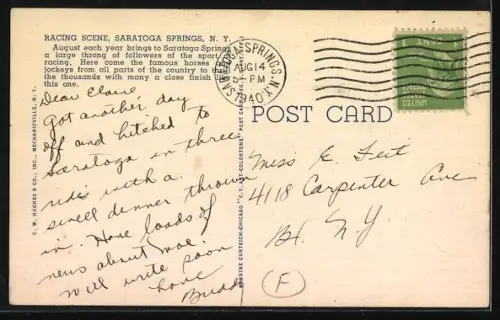 RACING SCENE, SARATOGA SPRINGS, N. Y.
August each year brings to Saratoga Springs
a large throng of followers of the sport
racing. Here come the famous horses
jockeys from all parts of the country to th
the thousands with many a close finish
this one.
Dear Claire,
Got another day
off and hitched to
Saratoga in three
rides with a
swell dinner thrown
in. Have loads of
news about mae.
Will write soon
Love
Budd
C. W. HUGHES & CO., INC., MECHANICVILLE, N. Y.
GENUINE CURTEICH-CHICAGO "C. T. ART-COLORTONE" POST CARD
SARATOGA SPRINGS, N.Y.
AUG 14
PM
1940
POST CARD
1 CENT 1
UNITED
Miss E. Feit
4118 Carpenter Ave
Bx. N.Y.
F